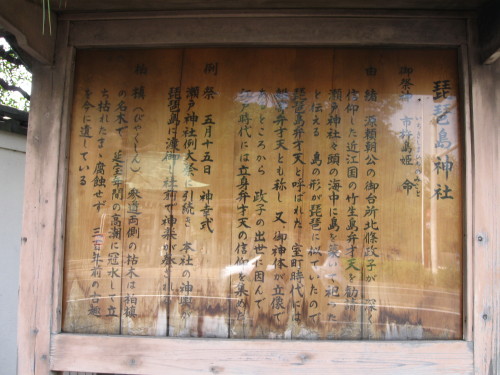 琵琶島神社
御祭神 市杵島姫 命
由緒 源頼朝公の御台所北條政子が
信仰した近江国の竹生島弁才天を勧請
瀬戸神社々頭の海中に島を築 祀った
と伝える 島の形が琵琶に似ていたので
琵琶島弁才天と呼ばれた 室町時代には
弁才天とも称し 又 御神体が立像で
あるところから 政子の出世に因んで
江戸時代には立身弁才天の信仰を集めた
例祭 五月十五日 神幸式
瀬戸神社例大祭に引続き 本社の神輿が
琵琶島に渡御し 社前で神楽が
柏槙(びゃくしん) 参道両側の枯木は柏槙
の名木で 延宝年間の高潮に冠水して立
ち枯れたまゝ腐蝕せず 三百年前の古趣
を今に遺している